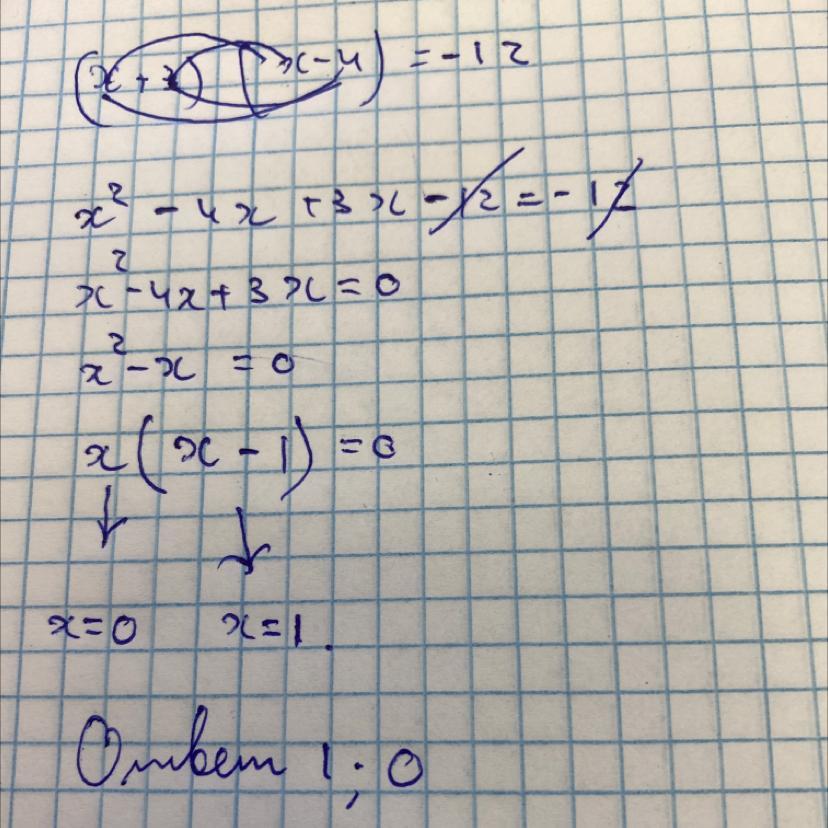 (x+3)(x-4) = -12
x² - 4x + 3x - 12 = -12
x² - 4x + 3x = 0
x² - x = 0
x(x - 1) = 0
x=0 x=1.
Ответ 1; 0